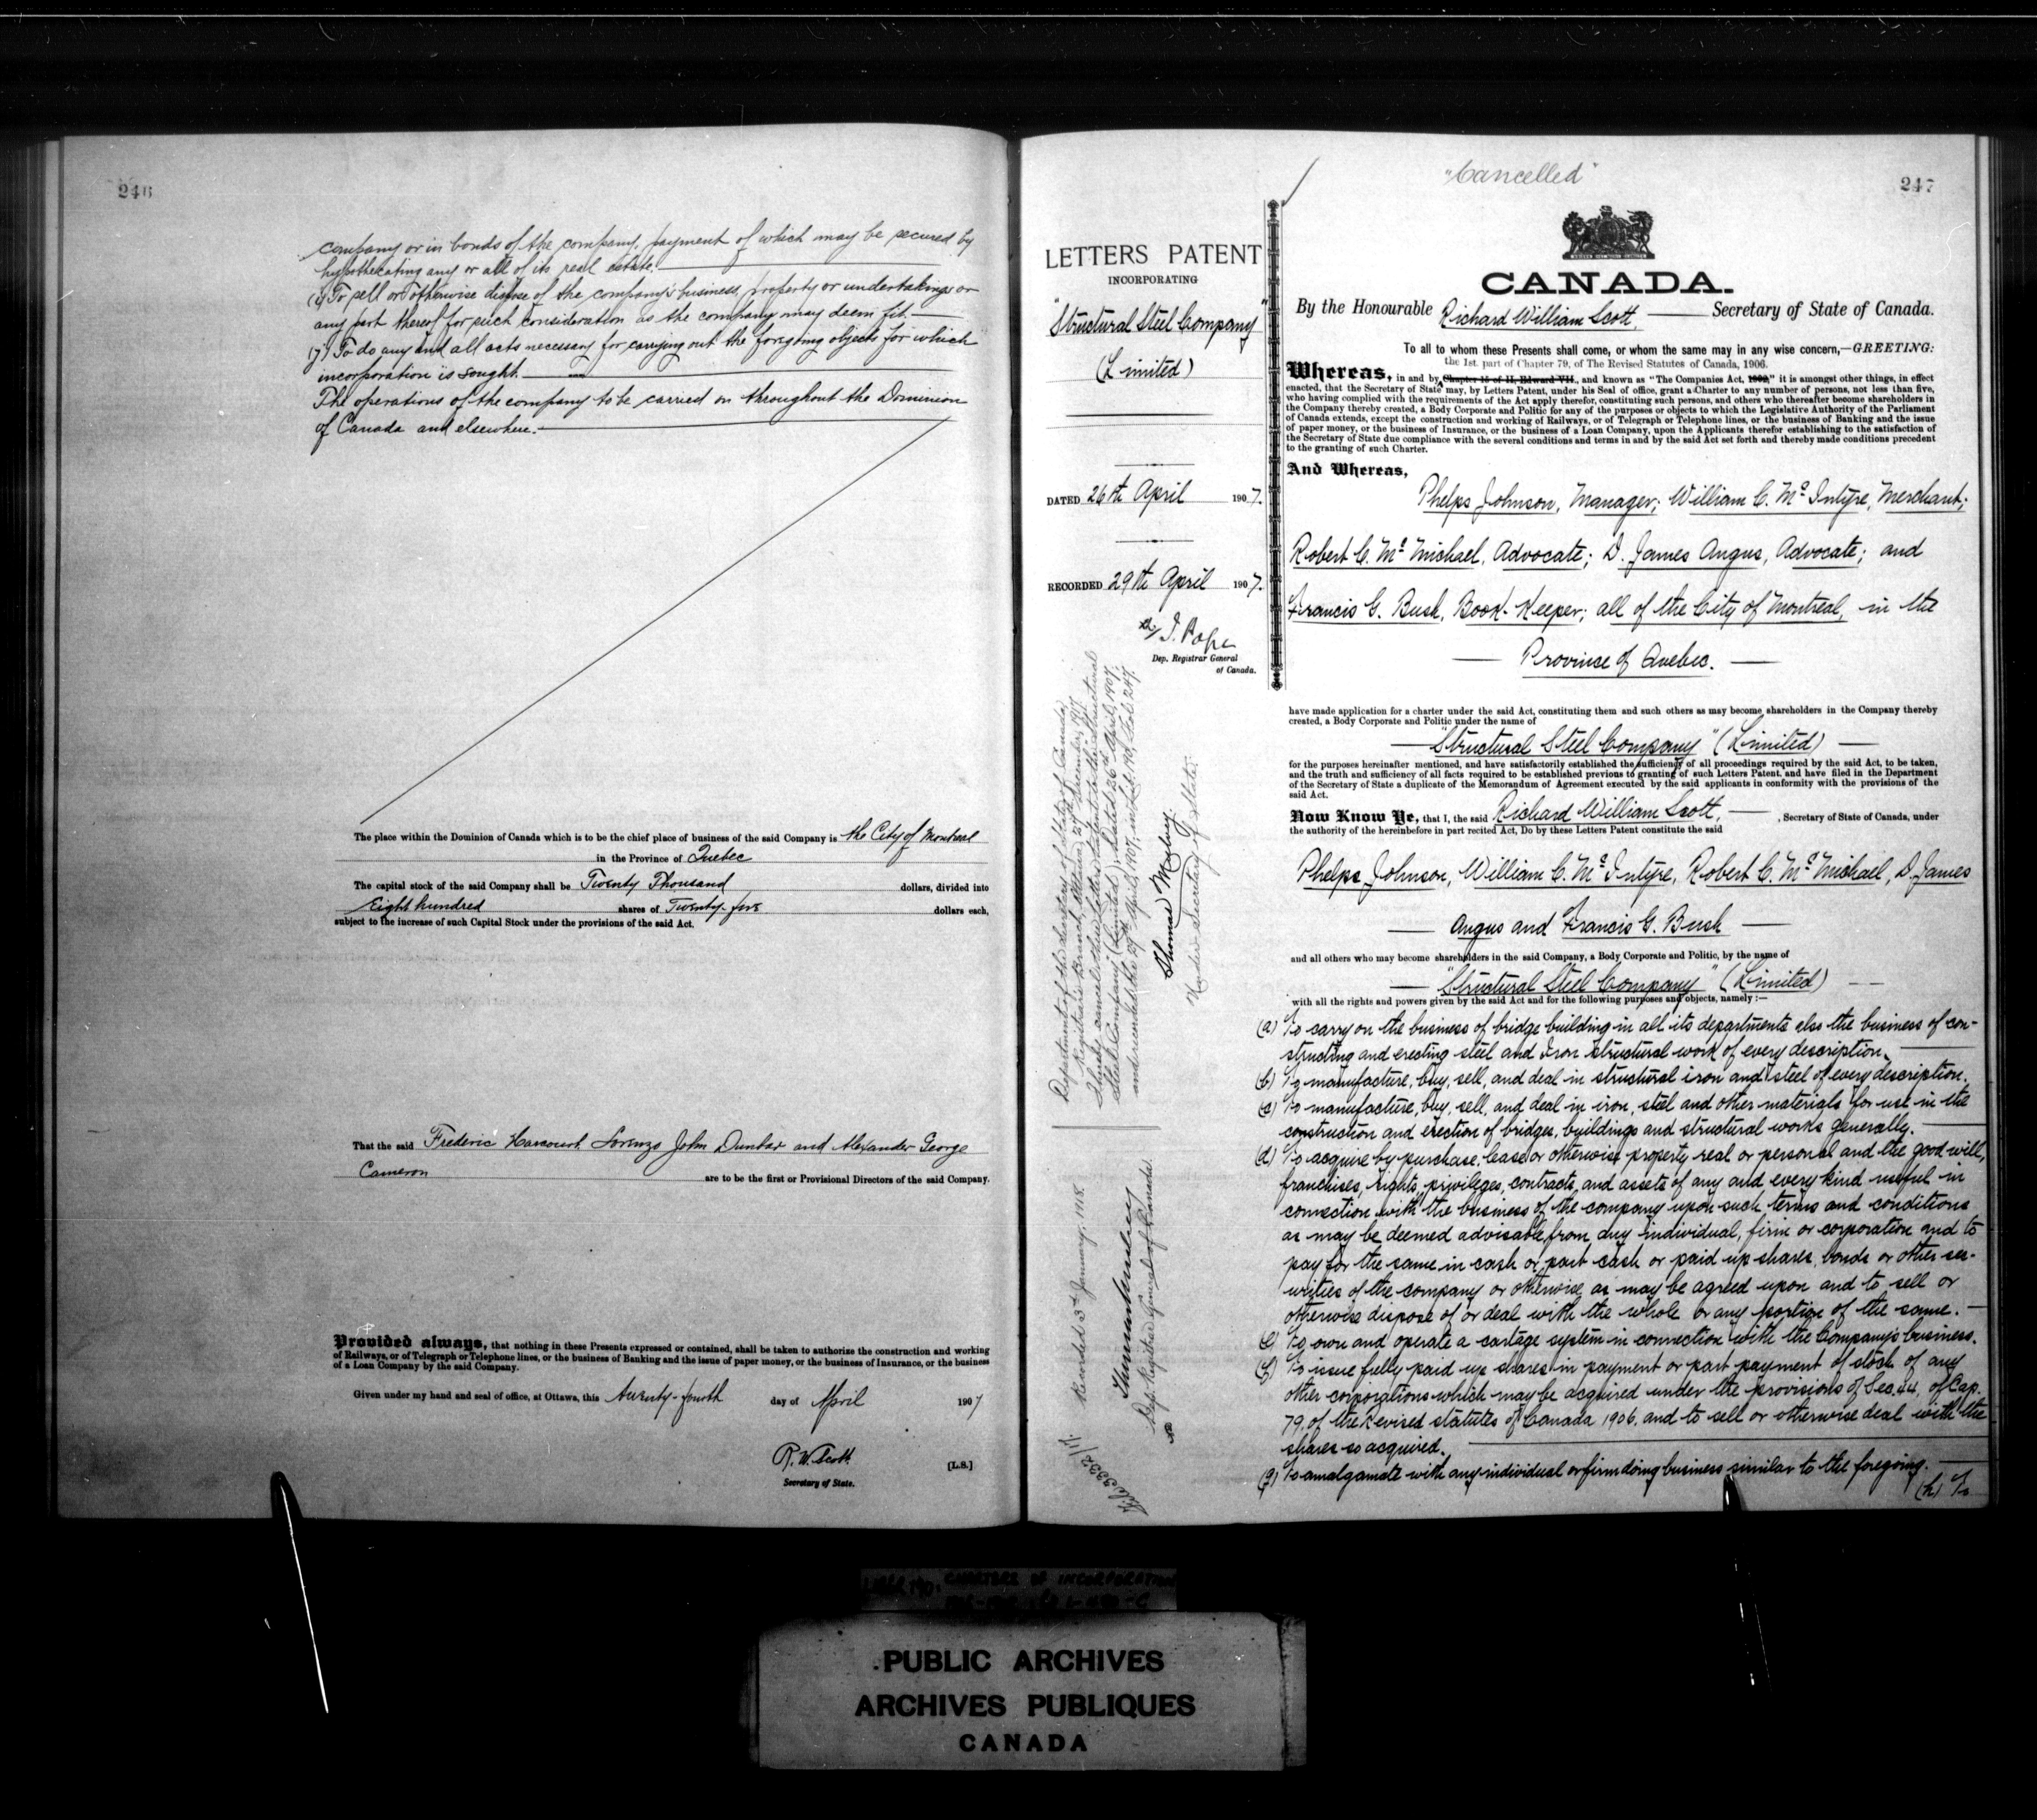 246
company or in bonds of the company, payment of which may be secured by
hypothecating any or all of its real estate.
To sell or otherwise dispose of the company's business, property or undertakings or
any part thereof for such consideration as the company may deem fit.
To do any and all acts necessary for carrying out the foregoing objects for which
incorporation is sought.
The operations of the company to be carried on throughout the Dominion
of Canada and elsewhere.
The place within the Dominion of Canada which is to be the chief place of business of the said Company is the City of Montreal
in the Province of Quebec
The capital stock of the said Company shall be Twenty Thousand dollars, divided into
Eight hundred shares of Twenty-five dollars each,
subject to the increase of such Capital Stock under the provisions of the said Act.
That the said Frederic Harcourt, Lorenzo John Dunbar and Alexander George
Cameron are to be the first or Provisional Directors of the said Company.
Provided always, that nothing in these Presents expressed or contained, shall be taken to authorize the construction and working
of Railways, or of Telegraph or Telephone lines, or the business of Banking and the issue of paper money, or the business of Insurance, or the business
of a Loan Company by the said Company.
Given under my hand and seal of office, at Ottawa, this Twenty-fourth day of April 1907
R. W. Scott
[L.S.]
Secretary of State.
"Cancelled"
247
LETTERS PATENT
INCORPORATING
"Structural Steel Company"
(Limited)
DATED 26th April 1907.
RECORDED 29th April 1907.
J. Pope
Dep. Registrar General
of Canada.
Department of the Secretary of State of Canada,
Registrar's Branch, Ottawa, 27th December, 1917.
I hereby cancel these Letters Patent to the "Structural
Steel Company (Limited). Dated 26th April, 1907,
and recorded the 29th April, 1907, in Lib. 190, Fol. 247.
Thomas Mulvey.
Under Secretary of State.
Recorded 3rd January, 1918.
Dep. Registrar General of Canada.
File 3332/17.
CANADA.
By the Honourable Richard William Scott, Secretary of State of Canada.
To all to whom these Presents shall come, or whom the same may in any wise concern,—GREETING:
the 1st. part of Chapter 79, of The Revised Statutes of Canada, 1906.
Whereas, in and by Chapter 15 of II, Edward VII., and known as "The Companies Act, 1902," it is amongst other things, in effect
enacted, that the Secretary of State may, by Letters Patent, under his Seal of office, grant a Charter to any number of persons, not less than five,
who having complied with the requirements of the Act apply therefor, constituting such persons, and others who thereafter become shareholders in
the Company thereby created, a Body Corporate and Politic for any of the purposes or objects to which the Legislative Authority of the Parliament
of Canada extends, except the construction and working of Railways, or of Telegraph or Telephone lines, or the business of Banking and the issue
of paper money, or the business of Insurance, or the business of a Loan Company, upon the Applicants therefor establishing to the satisfaction of
the Secretary of State due compliance with the several conditions and terms in and by the said Act set forth and thereby made conditions precedent
to the granting of such Charter.
And Whereas,
Phelps Johnson, Manager; William C. McIntyre, Merchant;
Robert C. McMichael, Advocate; D. James Angus, Advocate; and
Francis G. Bush, Book-Keeper; all of the City of Montreal, in the
Province of Quebec.
have made application for a charter under the said Act, constituting them and such others as may become shareholders in the Company thereby
created, a Body Corporate and Politic under the name of
"Structural Steel Company" (Limited)
for the purposes hereinafter mentioned, and have satisfactorily established the sufficiency of all proceedings required by the said Act, to be taken,
and the truth and sufficiency of all facts required to be established previous to granting of such Letters Patent, and have filed in the Department
of the Secretary of State a duplicate of the Memorandum of Agreement executed by the said applicants in conformity with the provisions of the
said Act.
Now Know Ye, that I, the said Richard William Scott, , Secretary of State of Canada, under
the authority of the hereinbefore in part recited Act, Do by these Letters Patent constitute the said
Phelps Johnson, William C. McIntyre, Robert C. McMichael, D. James
Angus and Francis G. Bush
and all others who may become shareholders in the said Company, a Body Corporate and Politic, by the name of
"Structural Steel Company" (Limited)
with all the rights and powers given by the said Act and for the following purposes and objects, namely :—
(a) To carry on the business of bridge building in all its departments also the business of con-
structing and erecting steel and Iron structural work of every description.
(b) To manufacture, buy, sell, and deal in structural iron and steel of every description.
(c) To manufacture, buy, sell, and deal in iron, steel and other materials for use in the
construction and erection of bridges, buildings and structural works generally.
(d) To acquire by purchase, lease or otherwise property real or personal and the good will,
franchises, rights, privileges, contracts, and assets of any and every kind useful in
connection with the business of the company upon such terms and conditions
as may be deemed advisable from any individual, firm or corporation and to
pay for the same in cash or part cash or paid up shares, bonds or other sec-
urities of the company or otherwise as may be agreed upon and to sell or
otherwise dispose of or deal with the whole or any portion of the same.
(e) To own and operate a cartage system in connection with the Company's business.
(f) To issue fully paid up shares in payment or part payment of stock of any
other corporations which may be acquired under the provisions of Sec. 44, of Cap.
79, of the Revised statutes of Canada 1906, and to sell or otherwise deal with the
shares so acquired.
(g) To amalgamate with any individual or firm doing business similar to the foregoing.
(h) To
CHARTERS OF INCORPORATION
PUBLIC ARCHIVES
ARCHIVES PUBLIQUES
CANADA